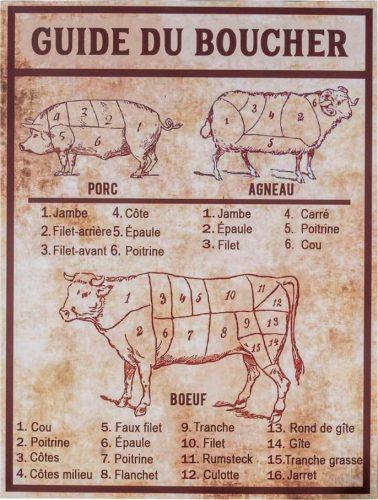 GUIDE DU BOUCHER
3 2 4 1 5 6
3 4 2 6 1 5
PORC AGNEAU
1. Jambe 4. Côte 1. Jambe 4. Carré
2. Filet-arrière 5. Épaule 2. Épaule 5. Poitrine
3. Filet-avant 6. Poitrine 3. Filet 6. Cou
1 3 4 5 10 11 12 13
2 6 7 8 9 14 15 16
BOEUF
1. Cou 5. Faux filet 9. Tranche 13. Rond de gîte
2. Poitrine 6. Épaule 10. Filet 14. Gîte
3. Côtes 7. Poitrine 11. Rumsteck 15. Tranche grasse
4. Côtes milieu 8. Flanchet 12. Culotte 16. Jarret